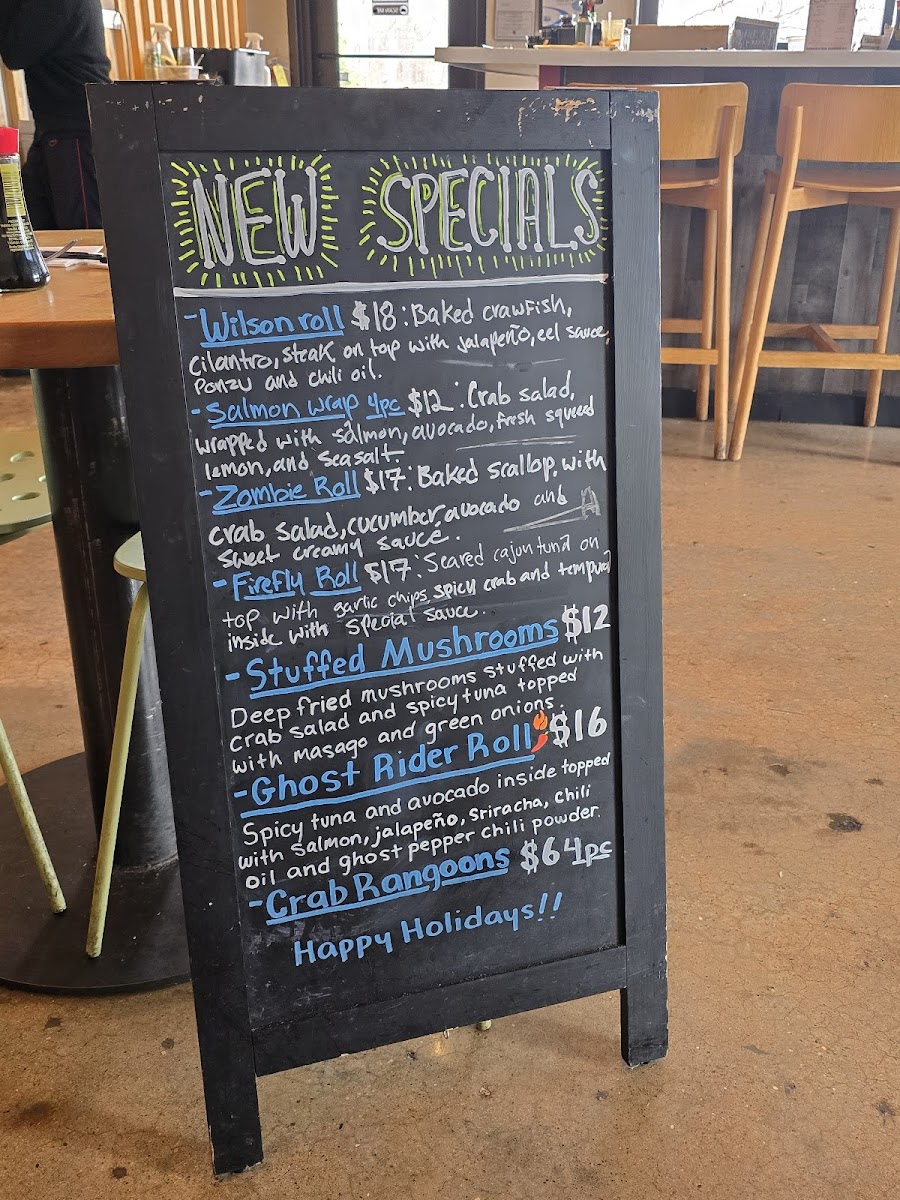 NEW SPECIALS
-Wilson roll $18: Baked crawfish,
cilantro, steak on top with jalapeño, eel sauce,
Ponzu and chili oil.
-Salmon wrap 4pc $12: Crab salad,
wrapped with salmon, avocado, fresh squeed
lemon, and sea salt.
-Zombie Roll $17: Baked scallop, with
crab salad, cucumber, avocado and
sweet creamy sauce.
-Firefly Roll $17: Seared cajun tuna on
top with garlic chips, spicy crab and tempura
inside with special sauce.
-Stuffed Mushrooms $12
Deep fried mushrooms stuffed with
crab salad and spicy tuna topped
with masago and green onions.
-Ghost Rider Roll $16
Spicy tuna and avocado inside topped
with salmon, jalapeño, sriracha, chili
oil and ghost pepper chili powder.
-Crab Rangoons $6 4pc
Happy Holidays!!